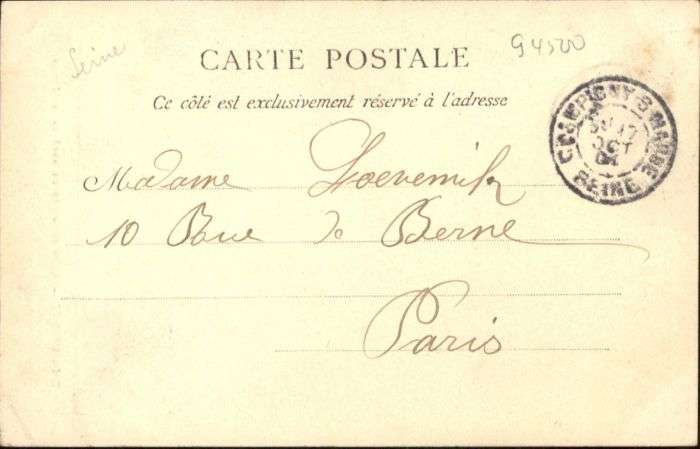 Seine
94500
CARTE POSTALE
Ce côté est exclusivement réservé à l'adresse
CHAMPIGNY S MARNE
17
OCT
SEINE
Madame
10 Rue de Berne
Paris